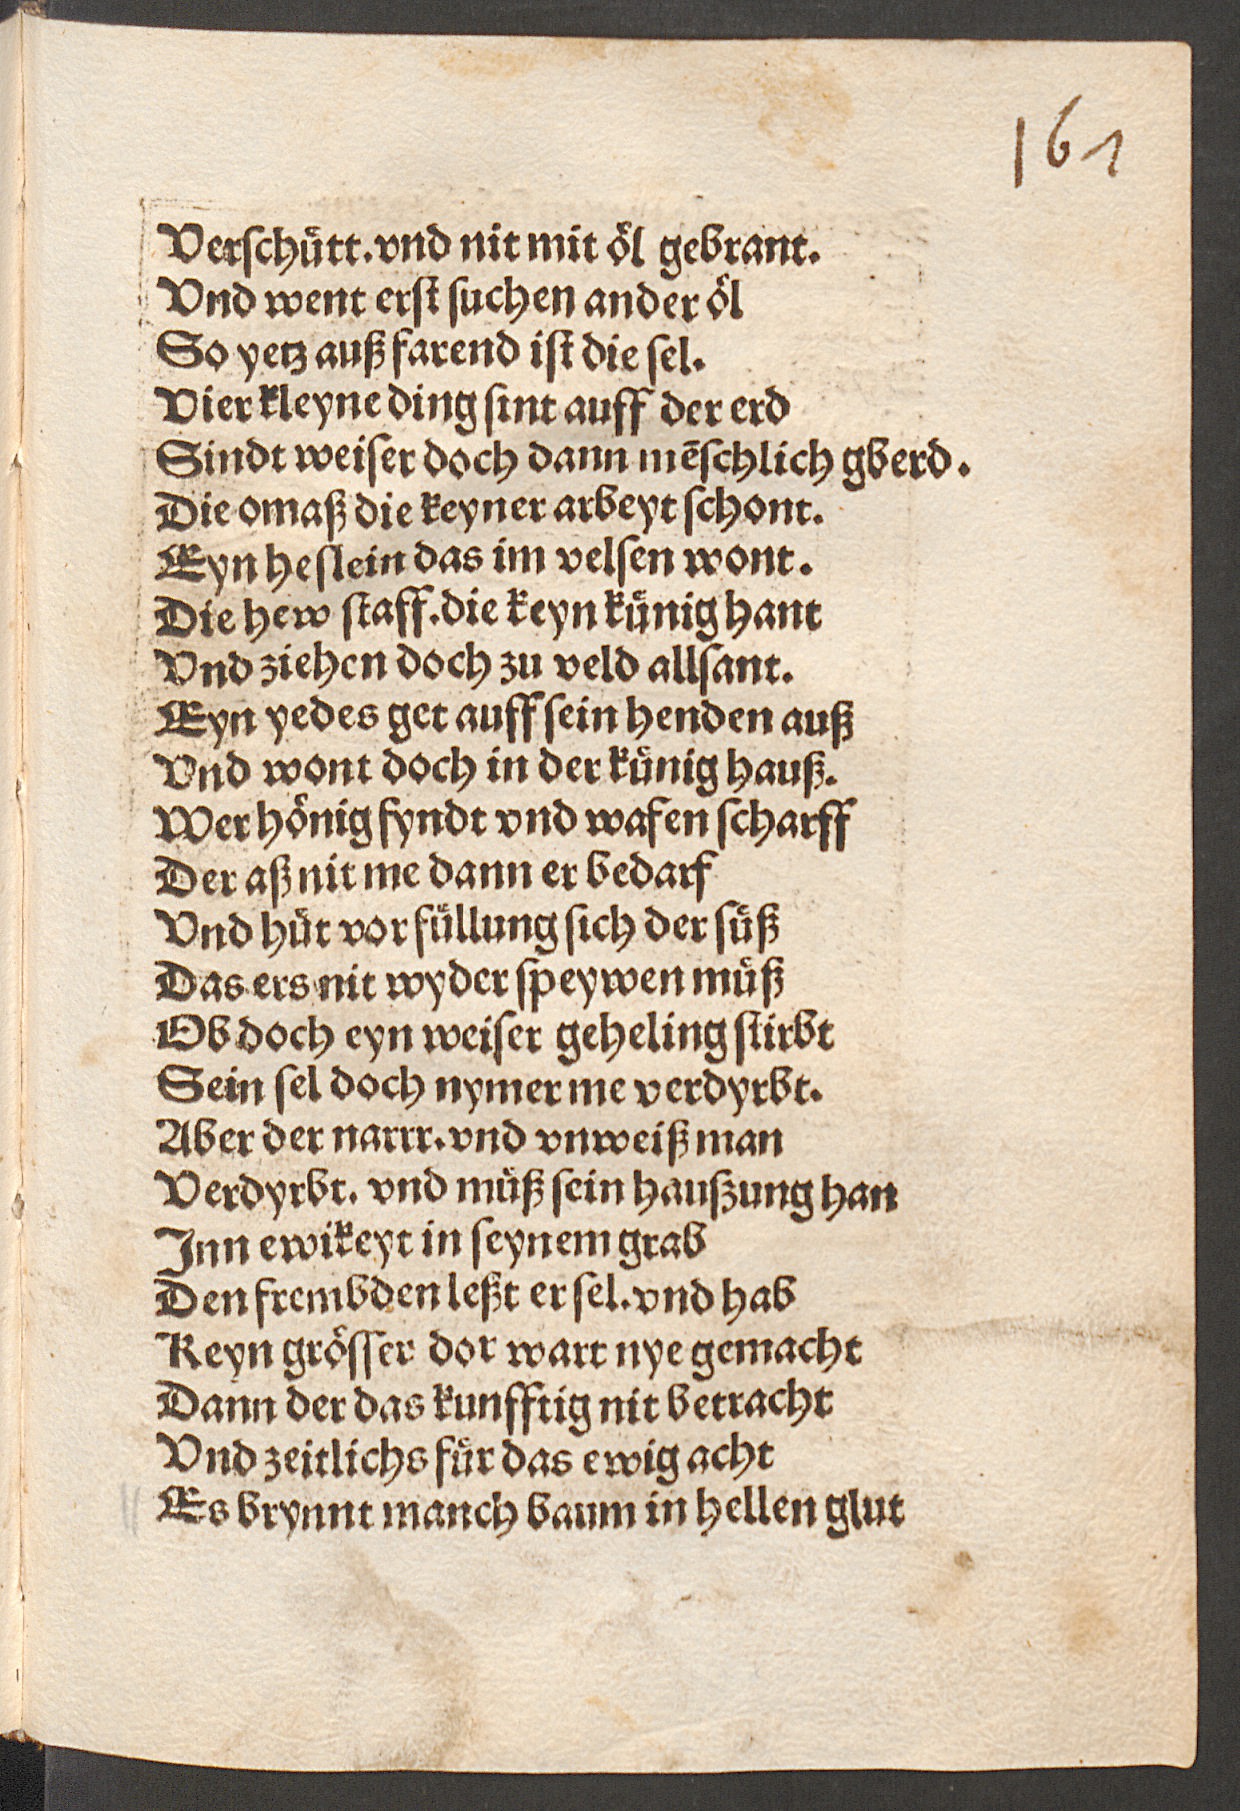 161
Verschütt. vnd nit mit öl gebrant.
Vnd went erst suchen ander öl
So yetz auß farend ist die sel.
Vier kleyne ding sint auff der erd
Sindt weiser doch dann mēschlich gberd.
Die omaß die keyner arbeyt schont.
Eyn heslein das im velsen wont.
Die hew staff. die keyn künig hant
Vnd ziehen doch zu veld allsant.
Eyn yedes get auff sein henden auß
Vnd wont doch in der künig hauß.
Wer hönig fyndt vnd wafen scharff
Der aß nit me dann er bedarf
Vnd hüt vor füllung sich der süß
Das ers nit wyder speywen müß
Ob doch eyn weiser geheling stirbt
Sein sel doch nymer me verdyrbt.
Aber der narrr. vnd vnweiß man
Verdyrbt. vnd müß sein haußung han
Inn ewikeyt in seynem grab
Den frembden leßt er sel. vnd hab
Keyn grösser dor wart nye gemacht
Dann der das kunfftig nit betracht
Vnd zeitlichs für das ewig acht
Es brynnt manch baum in hellen glut